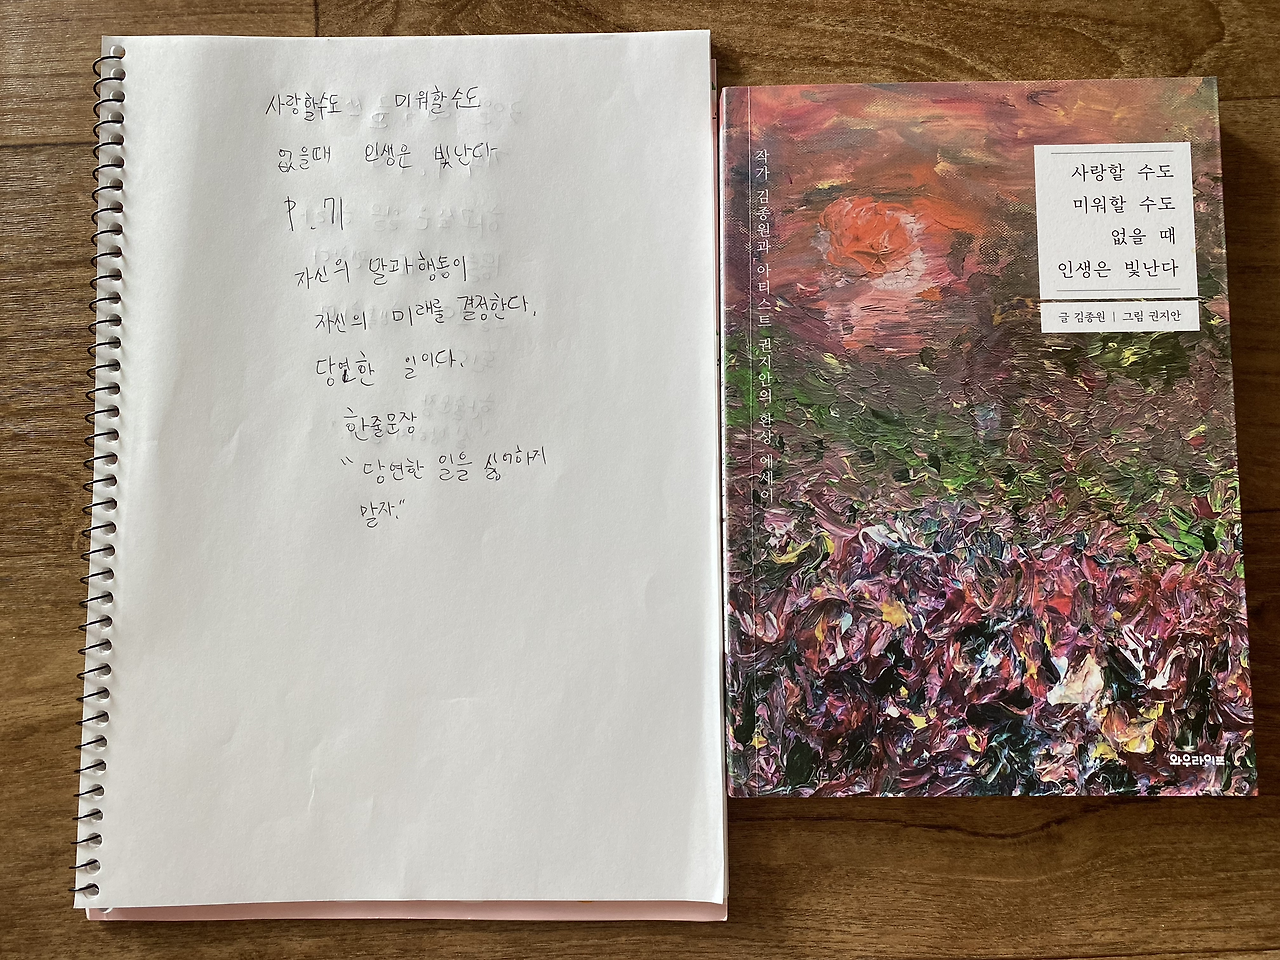 사랑할수도 미워할수도
없을때 인생은 빛난다
P. 71
자신의 말과행동이
자신의 미래를 결정한다.
당연한 일이다.
한줄문장
"당연한 일을 싫어하지
말자."
작가 김종원과 아티스트 권지안의 환상 에세이
사랑할 수도
미워할 수도
없을 때
인생은 빛난다
글 김종원 | 그림 권지안
와우라이프